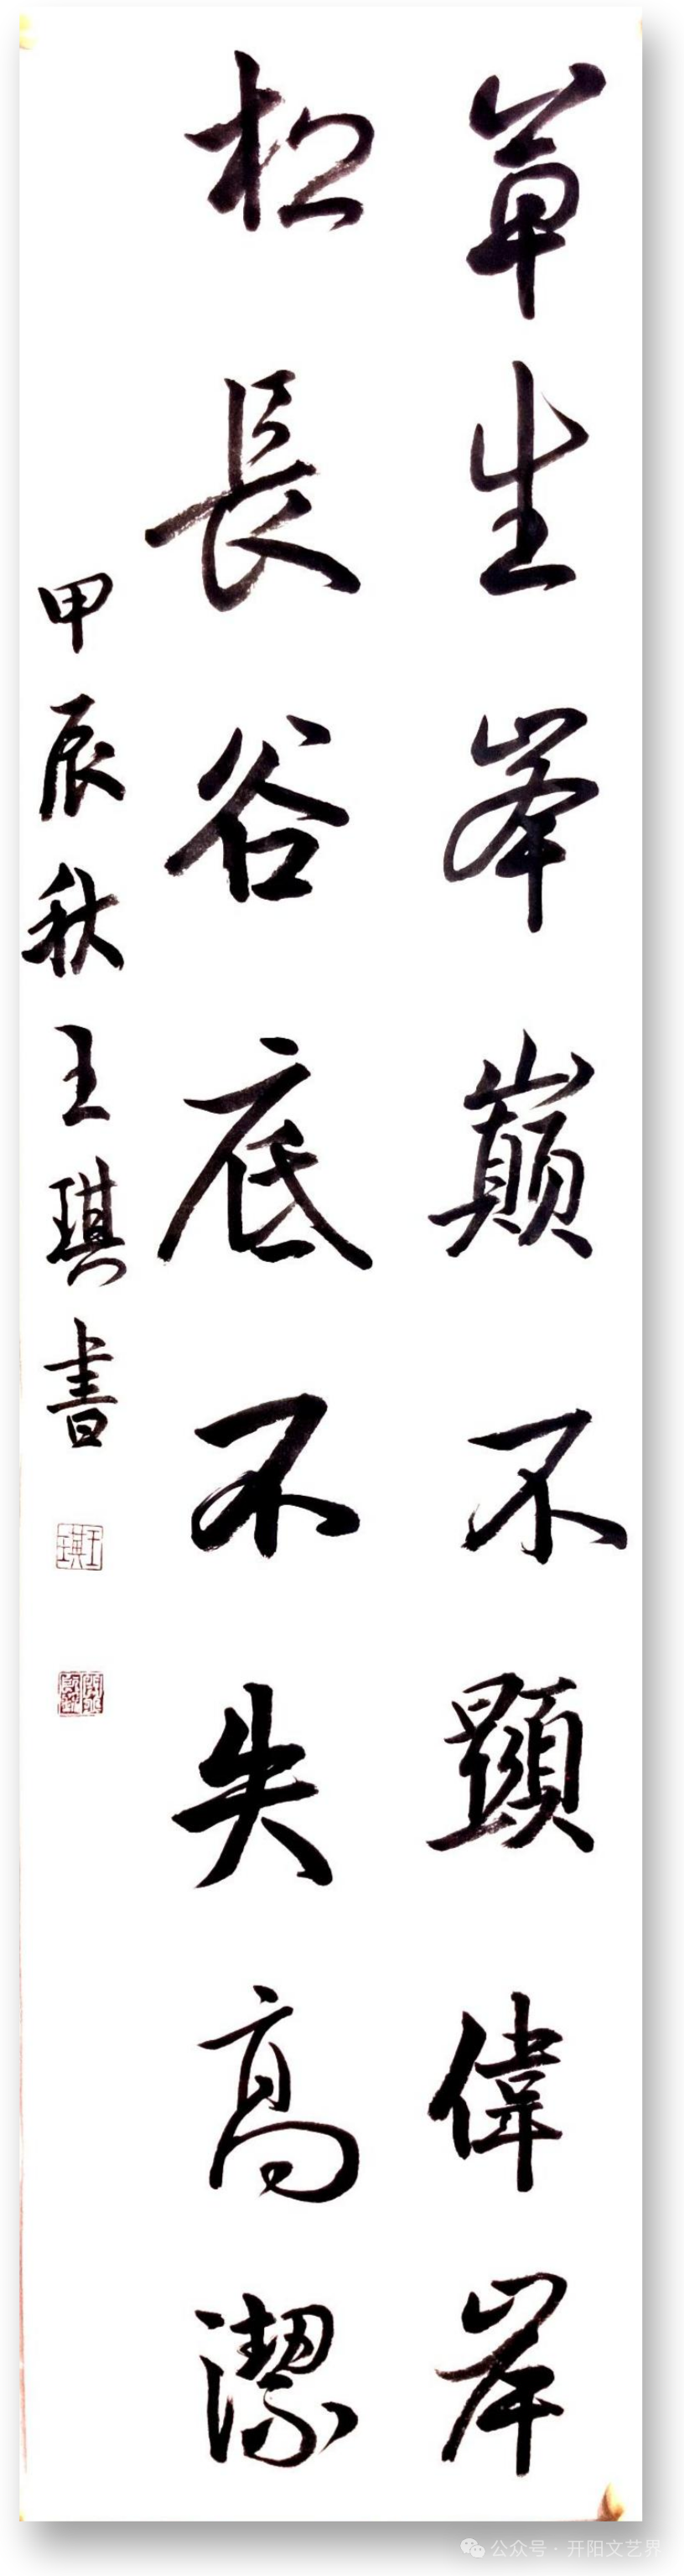 草生峯巔不顯偉岸
松長谷底不失高潔
甲辰秋王琪書
王琪
公众号 · 开阳文艺界